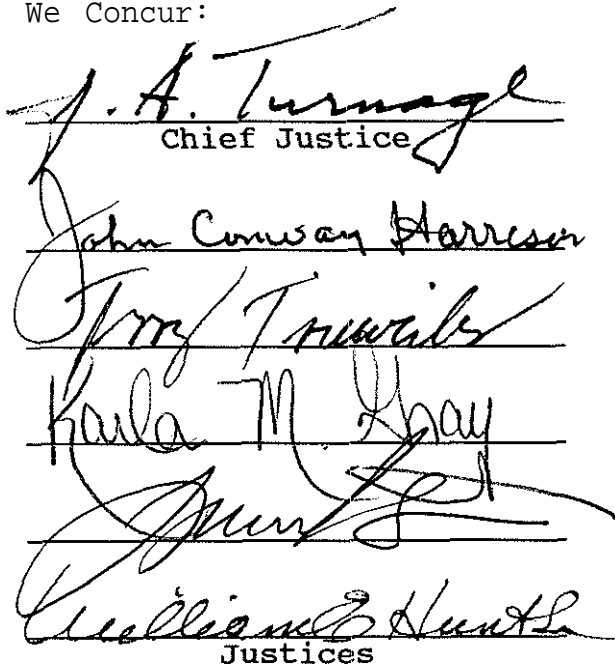 We Concur:
J. A. Turnage
Chief Justice
John Conway Harrison
Terry Trieweiler
Karla M. Gray
William E Hunt Sr
Justices